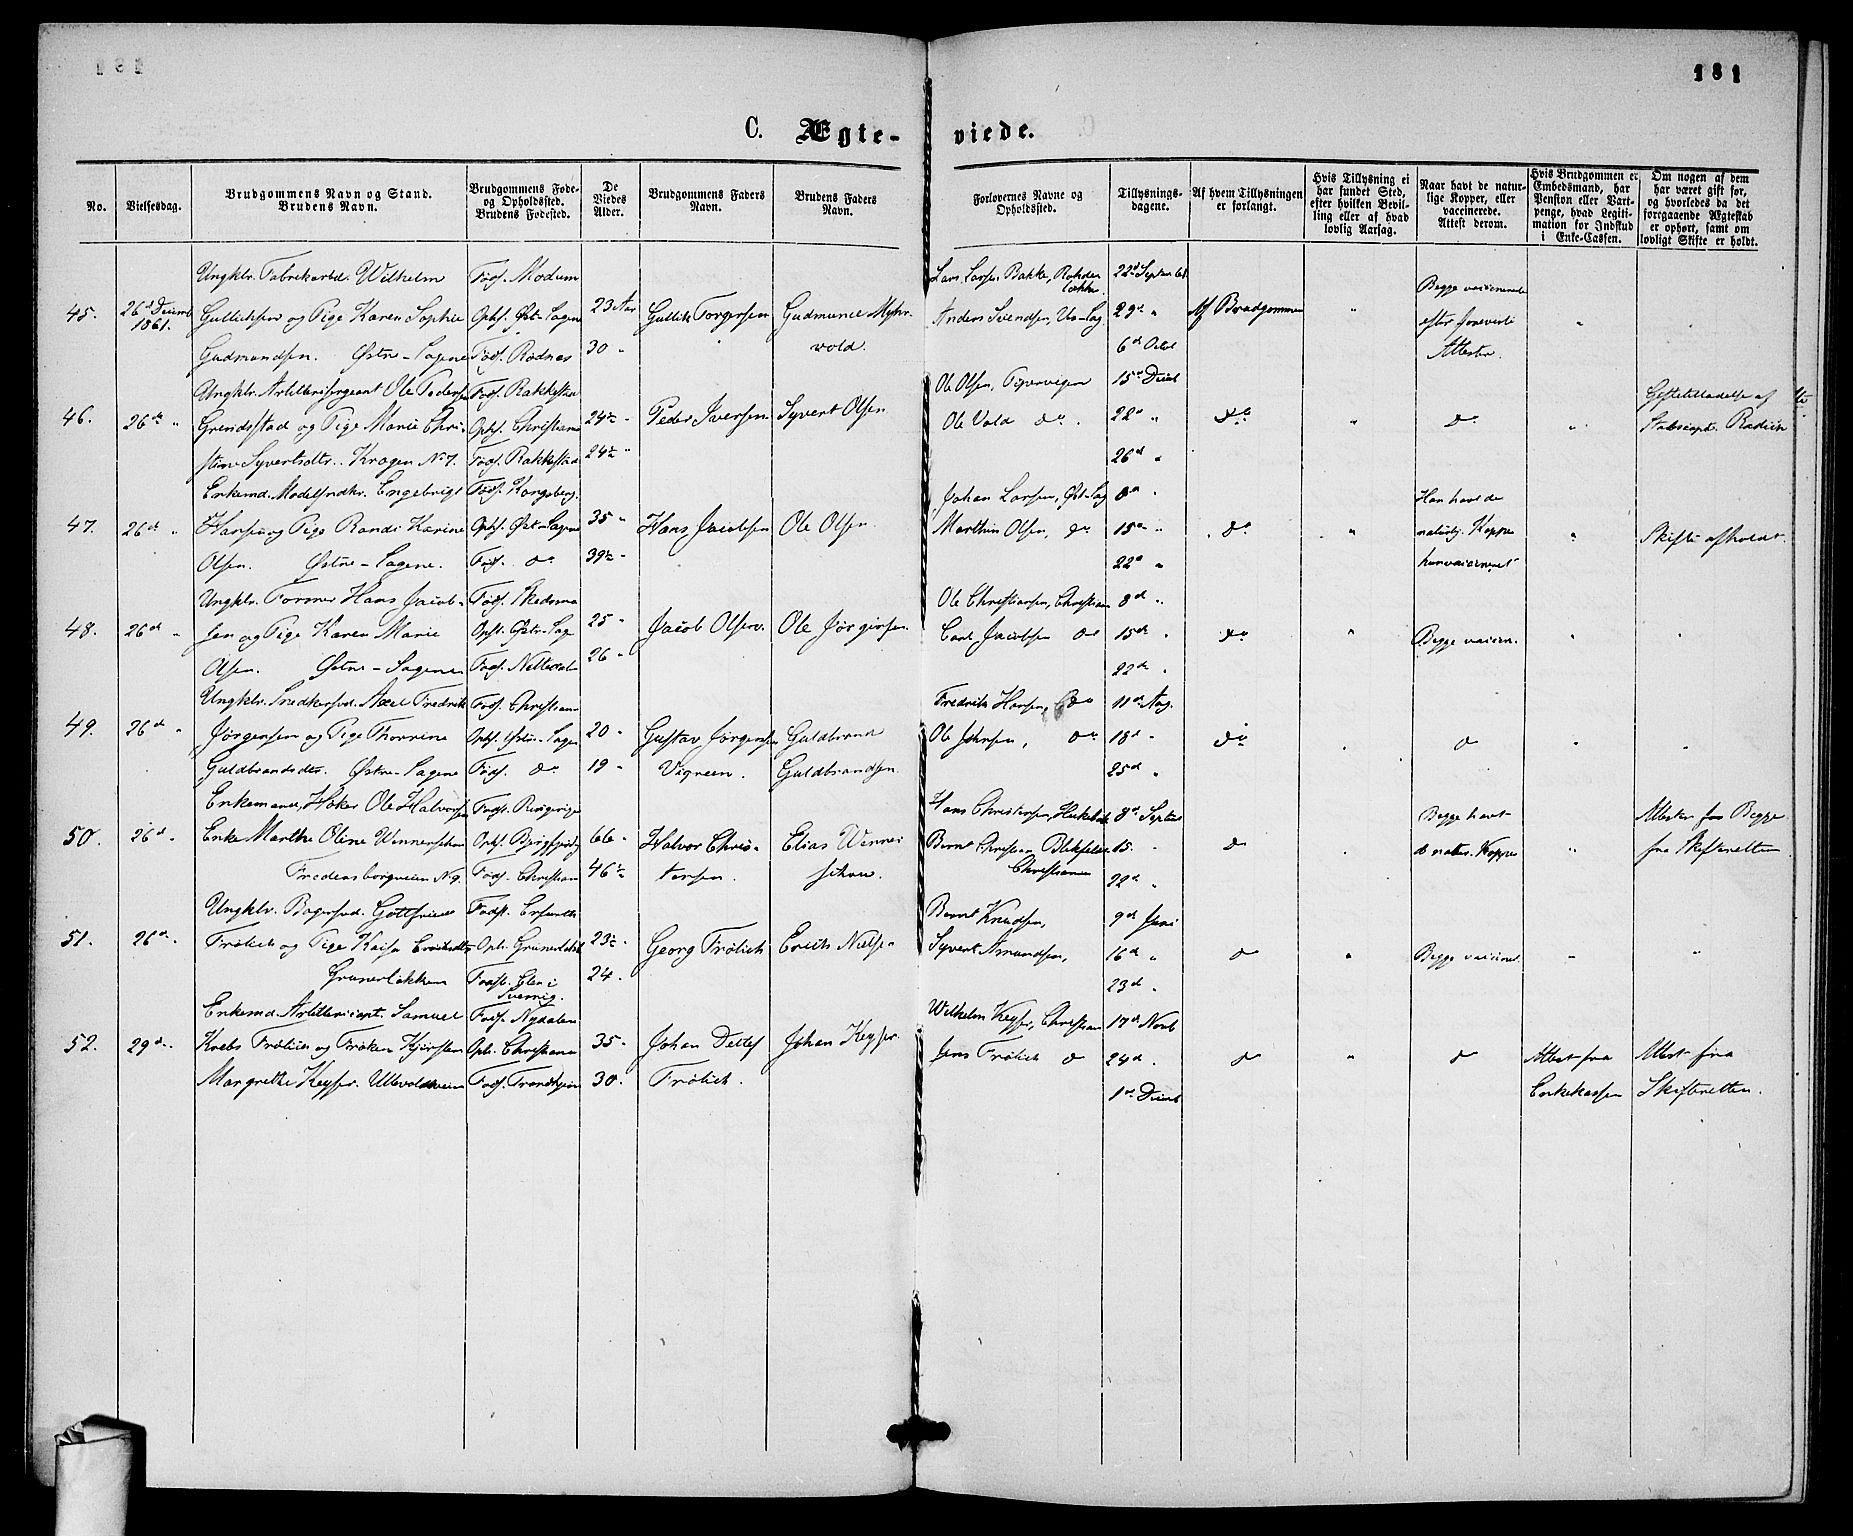 181
C. Ægte-
viede.
No.
Vielsesdag.
Brudgommens Navn og Stand.
Brudens Navn.
Brudgommens Føde-
og Opholdssted.
Brudens Fødested.
De
Viedes
Alder.
Brudgommens Faders
Navn.
Brudens Faders
Navn.
Forlovernes Navne og
Opholdssted.
Tillysnings-
dagene.
Af hvem Tillysningen
er forlangt.
Hvis Tillysning ei
har fundet Sted,
efter hvilken Bevil-
ling eller af hvad
lovlig Aarsag.
Naar havt de natur-
lige Kopper, eller
vaccinerede.
Attest derom.
Hvis Brudgommen er
Embedsmand, har
Pension eller Vart-
penge, hvad Legiti-
mation for Indskud
i Enke-Cassen.
Om nogen af dem
har været gift før,
og hvorledes da det
forrgaaende Ægteskab
er ophørt, samt om
lovligt Skifte er holdt.
45.
26d Decemb
1861.
Ungklr. Fabrikarbd. Wilhelm
Gullichsen og Pige Karen Sophie
Gudmundsen. Østre-Sagene
Fødf. Modum
Ophf. Østr. Sagen
Fødf. Rødnes
23 Aar
30 "
Gullik Torgersen
Gudmund Myhr
vold.
Lars Larsen Bakke, Rohde
løkke.
Anders Svendsen,
22d Septbr 61
29d "
6d Octob
Af Brudgommen
"
Begge vaccinerede
efter foreviste
Attester
"
46.
26de "
Ungklr. Artillerisergeant Ole Pedersen
Grendstad og Pige Marie Chri-
stine Syvertsdtr. Krogen No 7.
Fødf. Rakkestad
Ophf. Christiania
Fødf. Rakkestad
24½ "
24½ "
Peder Iversen
Syvert Olsen
Ole Olsen, Pipervigen
Ole Vold do.
15d Decb
22d "
26d "
do
"
do
"
Giftetilladelse af
Stabscapt. Rodin
47.
26d "
Enkemd. Modelsndkr. Engebrigt
Hansen og Pige Randi Karine
Olsen. Østre-Sagene.
Fødf. Kongsberg.
Ophf. Østr-Sagene
Fødf. do
35 "
39½ "
Hans Jacobsen
Ole Olsen
Johan Larsen, Øst-Sag
Marthin Olsen, do
8d "
15d "
22d "
do
"
Han havt de
naturlig. Kopper
hun vaccineret
"
Skifte afholdt.
48.
26d "
Ungklr. Former Hans Jacob-
sen og Pige Karen Marie
Olsen. Østre-Sagene
Fødf. Skedsmo
Ophf. Østr-Sage
Fødf. Nittedalen
25 "
26 "
Jacob Olsen.
Ole Jørgensen.
Ole Christiansen, Christian
Carl Jacobsen do
8d "
15d "
22d "
do
"
Begge vaccin.
"
49.
26d "
Ungklr. Snedkersvd. Axel Fredrik
Jørgensen og Pige Thorine
Guldbrandsdtr. Østre-Sagene
Fødf. Christiania
Ophf. Østre-Sagen
Fødf. do
20 "
19 "
Gustav Jørgensen
Vigreen.
Guldbrand
Guldbrandsen.
Fredrik Hansen, do
Ole Johnsen, do
11d Aug.
18d "
25d "
do
"
do
"
50.
26d "
Enkemand, Høker Ole Halvorsen
Enke Marthe Oline
Fredensborgveien No 9.
Fødf. Ringerige
Fødf. Christiania
66 "
46½
Halvor Chris-
tensen.
Elias
Hans Christensen,
Bernt Christian
Christiania
8d Septbr
15. "
22d "
do
"
Begge havt
d natur. Kopper
"
Attester for Begge
fra Skifteretten
51.
26d "
Ungklr. Bagersvd. Gottfried
Frølich og Pige Kaisa Ericksdtr
Grunerløkken
Fødf. Erfurth
Oph. Grunerløkk
Fødf. i
Sverrig.
23½ "
24 "
Georg Frølich
Erick Nielsen
Bernt Knudsen,
Syvert Amundsen,
9d Juni
16d "
23d "
do
"
Begge vaccinet.
"
"
52.
29d "
Enkemd. Artillericapt. Samuel
Krebs Frølich og Frøken Kjersten
Margrethe Keyser. Ullevoldsveien
Fødf. Nydalen
Oph. Christiania
Fødf. Trondhjem
35 "
30.
Johan Detlef
Frølich.
Johan Keyser.
Wilhelm Keyser, Christian
Jens Frølich do
17d Novb
24d "
1st Decmb
do
"
do
Attest fra
Enkekassen
Attest fra
Skifteretten.